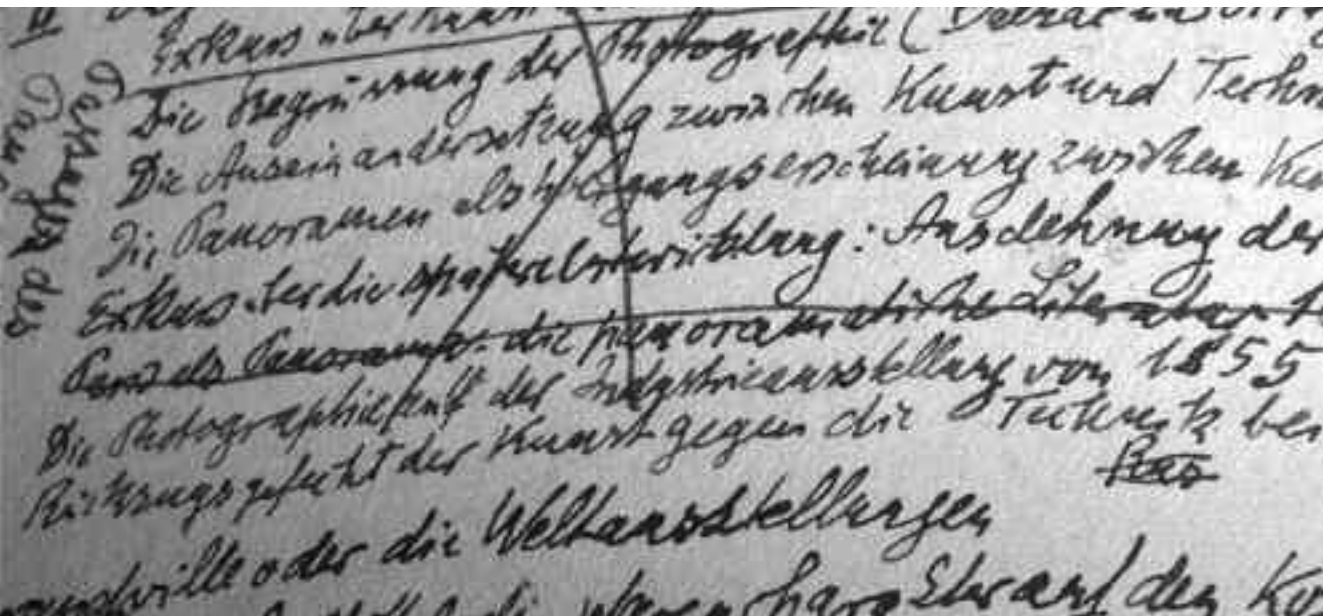 II
Exkurs über
Die Begrüssung der Photographie (
Die Auseinandersetzung zwischen Kunst und Techn
Die Panoramen als Übergangserscheinung zwischen Ku
Exkurs über die spätere Entwicklung: Ausdehnung der
Paris als Panorama: die panoramatische Literatur
Die Photographie auf der Industrieausstellung von 1855
Rückzugsgefecht der Kunst gegen die Technik bei
Ras
Grandville oder die Weltausstellungen
auf den
Passagen der